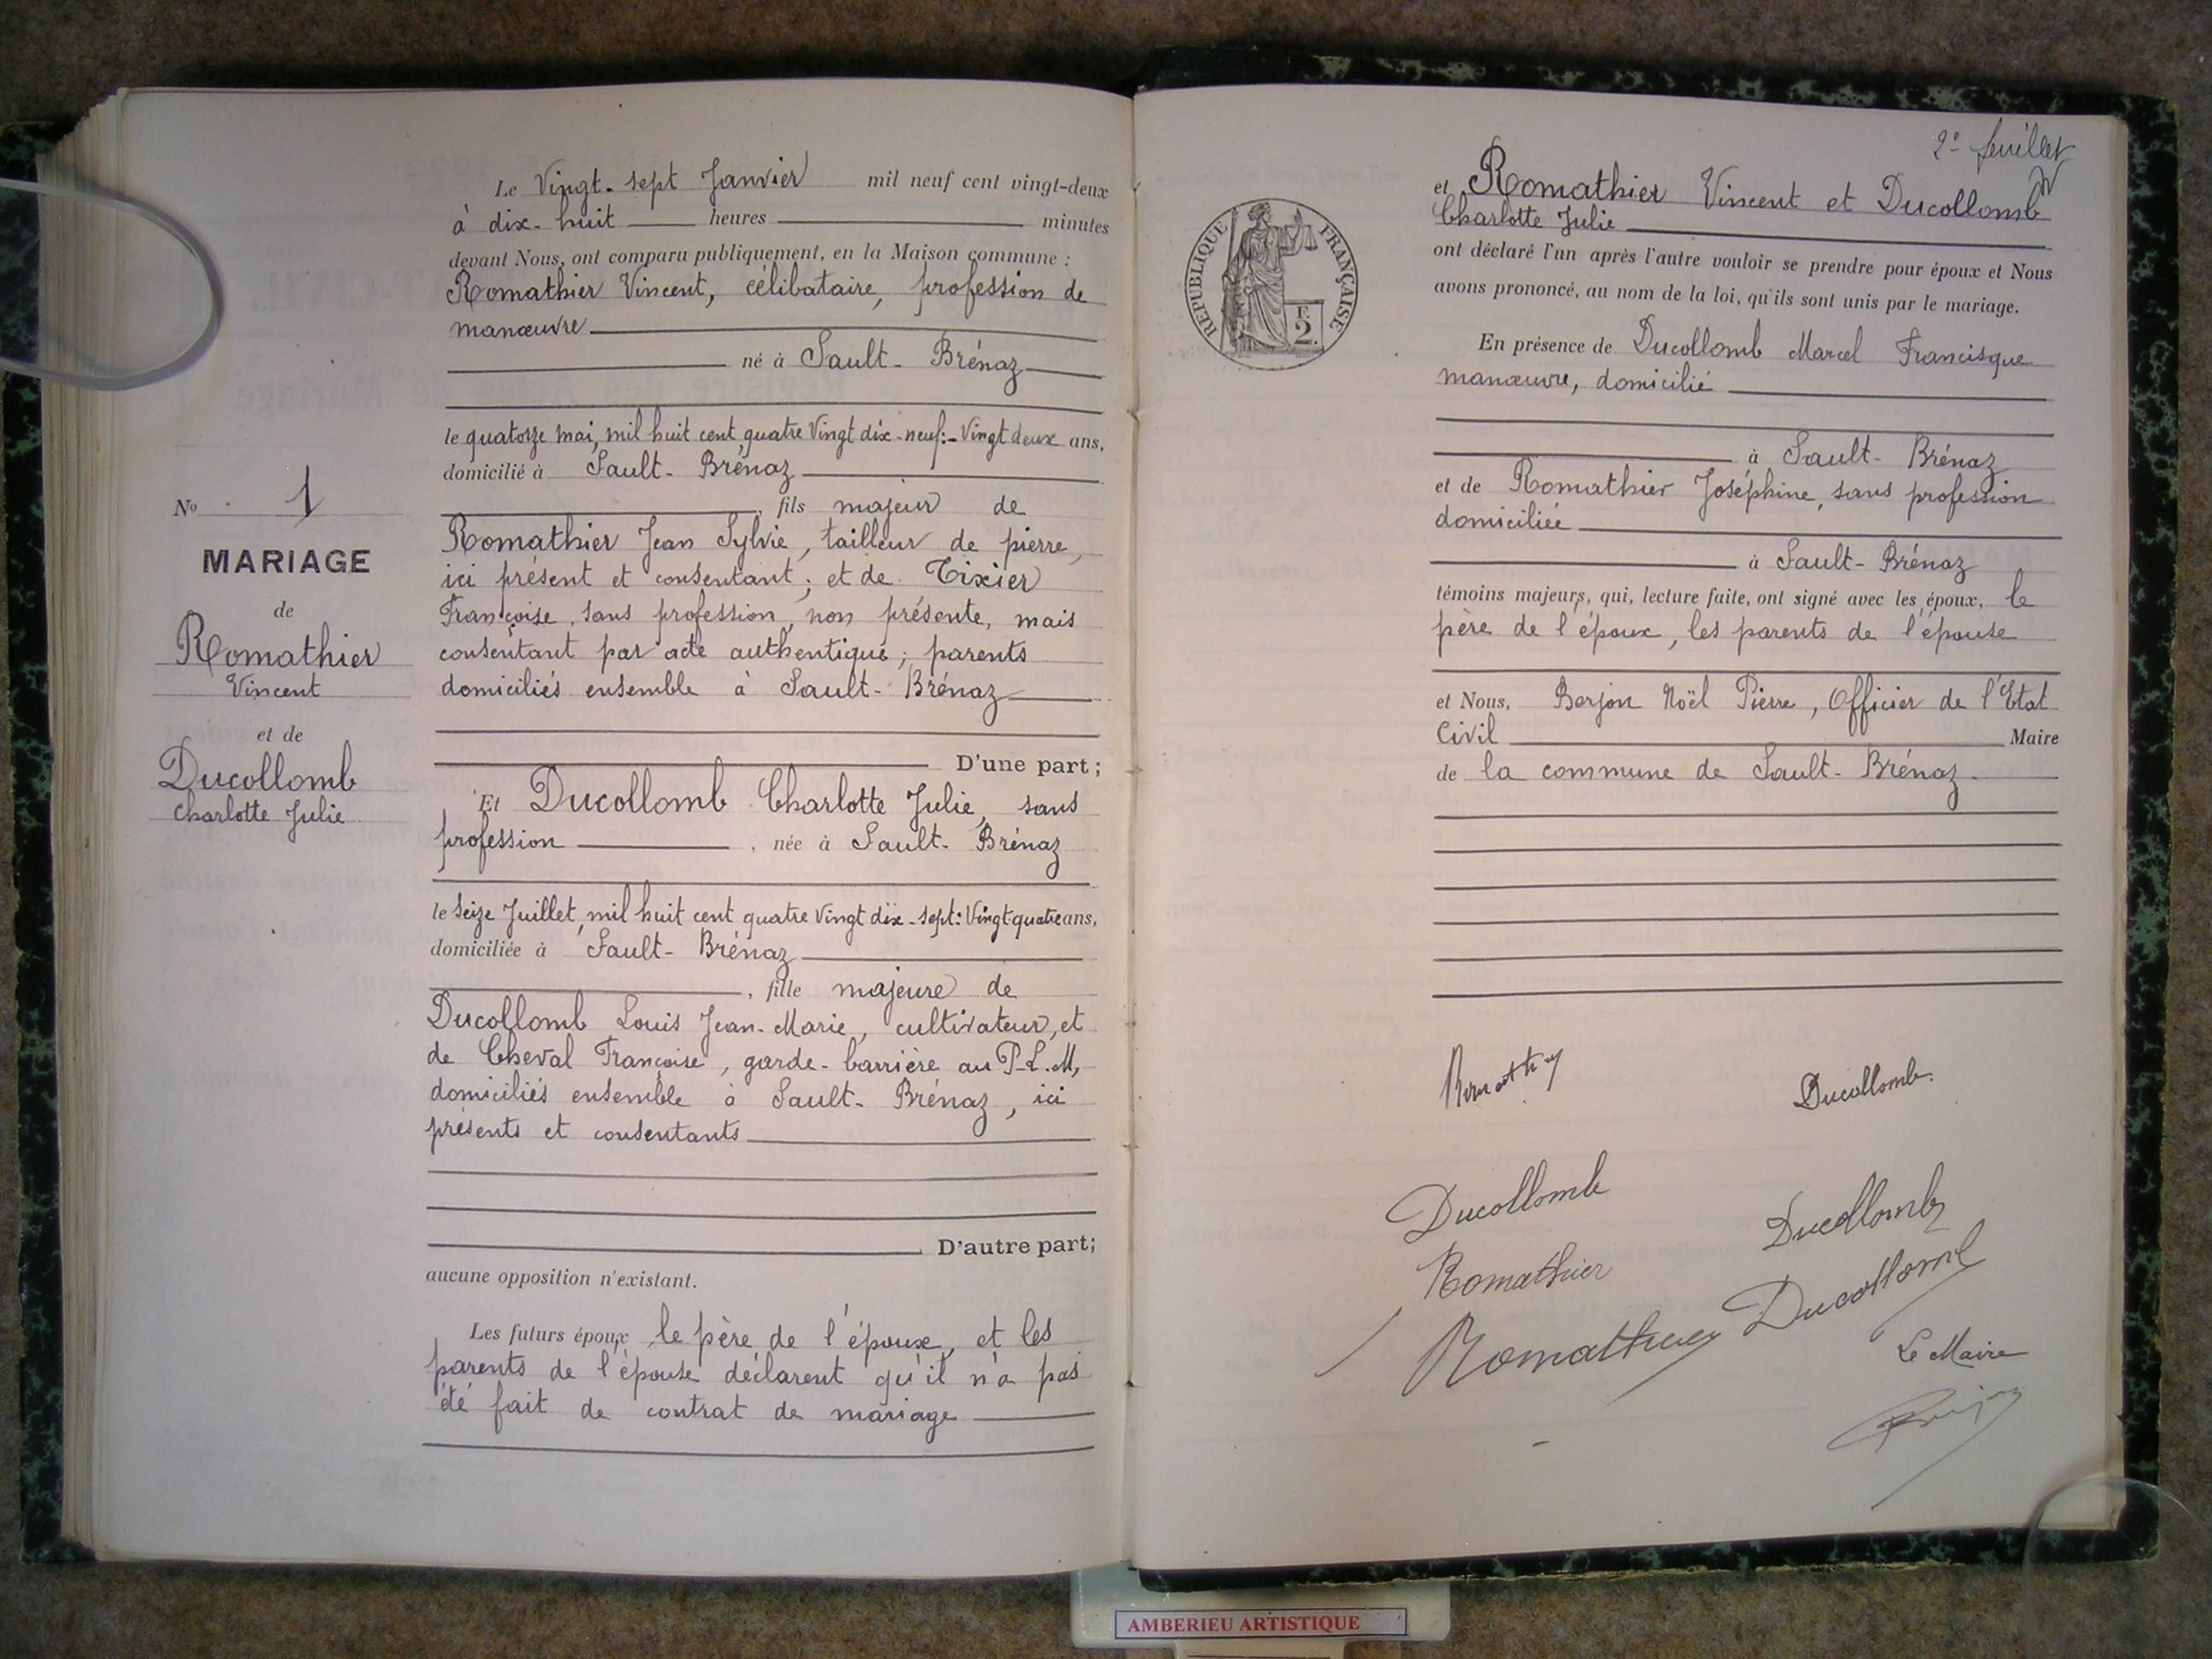 N° 1
MARIAGE
de
Romathier
Vincent
et de
Ducollomb
Charlotte Julie
Le Vingt-sept Janvier mil neuf cent vingt-deux
à dix-huit heures minutes
devant Nous, ont comparu publiquement, en la Maison commune :
Romathier Vincent, célibataire, profession de
manœuvre
né à Sault-Brénaz
le quatorze mai, mil huit cent quatre Vingt dix-neuf:-Vingt deux ans,
domicilié à Sault-Brénaz
, fils majeur de
Romathier Jean Sylvie, tailleur de pierre,
ici présent et consentant; et de Tixier
Françoise, sans profession, non présente, mais
consentant par acte authentique; parents
domiciliés ensemble à Sault-Brénaz
D'une part;
Et Ducollomb Charlotte Julie, sans
profession, née à Sault-Brénaz
le Seize Juillet, mil huit cent quatre Vingt dix-sept: Vingt-quatre ans,
domiciliée à Sault-Brénaz
, fille majeure de
Ducollomb Louis Jean-Marie, cultivateur, et
de Cheval Françoise, garde-barrière au P-L.M,
domiciliés ensemble à Sault-Brénaz, ici
présents et consentants
D'autre part;
aucune opposition n'existant.
Les futurs époux, le père de l'époux, et les
parents de l'épouse déclarent qu'il n'a pas
été fait de contrat de mariage
2e feuillet
REPUBLIQUE FRANÇAISE
F.
2.
et Romathier Vincent et Ducollomb
Charlotte Julie
ont déclaré l'un après l'autre vouloir se prendre pour époux et Nous
avons prononcé, au nom de la loi, qu'ils sont unis par le mariage.
En présence de Ducollomb Marcel Francisque
manœuvre, domicilié
à Sault-Brénaz
et de Romathier Joséphine, sans profession
domiciliée
à Sault-Brénaz
témoins majeurs, qui, lecture faite, ont signé avec les époux, le
père de l'époux, les parents de l'épouse
et Nous, Berjon Noël Pierre, Officier de l'Etat
Civil Maire
de la commune de Sault-Brénaz.
Ducollomb.
Ducollomb
Ducollomb
Romathier
Ducollomb
Romathier
Le Maire
AMBERIEU ARTISTIQUE